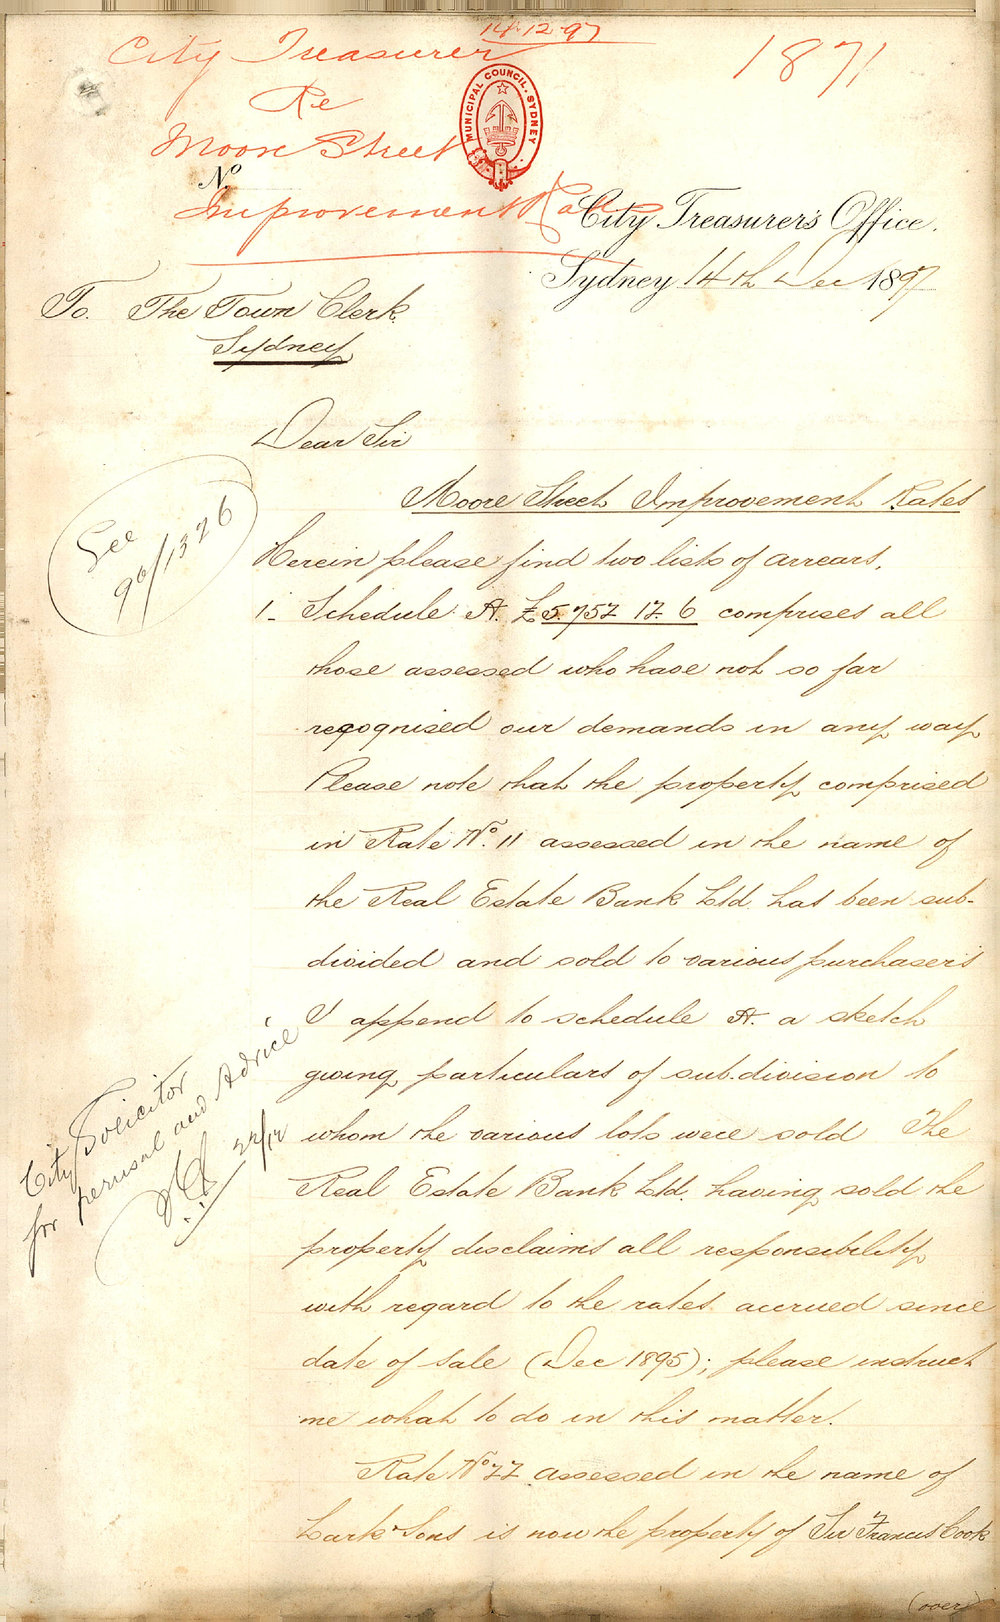 14.12.97
City Treasurer
1871
Re
Moore Street
Improvement Rates
MUNICIPAL COUNCIL. SYDNEY
No
City Treasurer's Office.
Sydney 14th Dec 1897
To. The Town Clerk
Sydney
Dear Sir
Moore Street Improvement Rates
Herein please find two lists of arrears.
See
96/1326
1- Schedule A. £5.757 17. 6 comprises all
those assessed who have not so far
recognised our demands in any way
Please note that the property comprised
in Rate No. 11 assessed in the name of
the Real Estate Bank Ltd. has been sub-
divided and sold to various purchasers
I append to schedule A. a sketch
giving particulars of sub.division to
whom the various lots were sold The
Real Estate Bank Ltd. having sold the
property disclaims all responsibility
with regard to the rates accrued since
date of sale (Dec 1895); please instruct
me what to do in this matter.
City Solicitor
for perusal and Advice
22/12
Rate No 77 assessed in the name of
Lark Sons is now the property of Sir Francis Cook
(over)